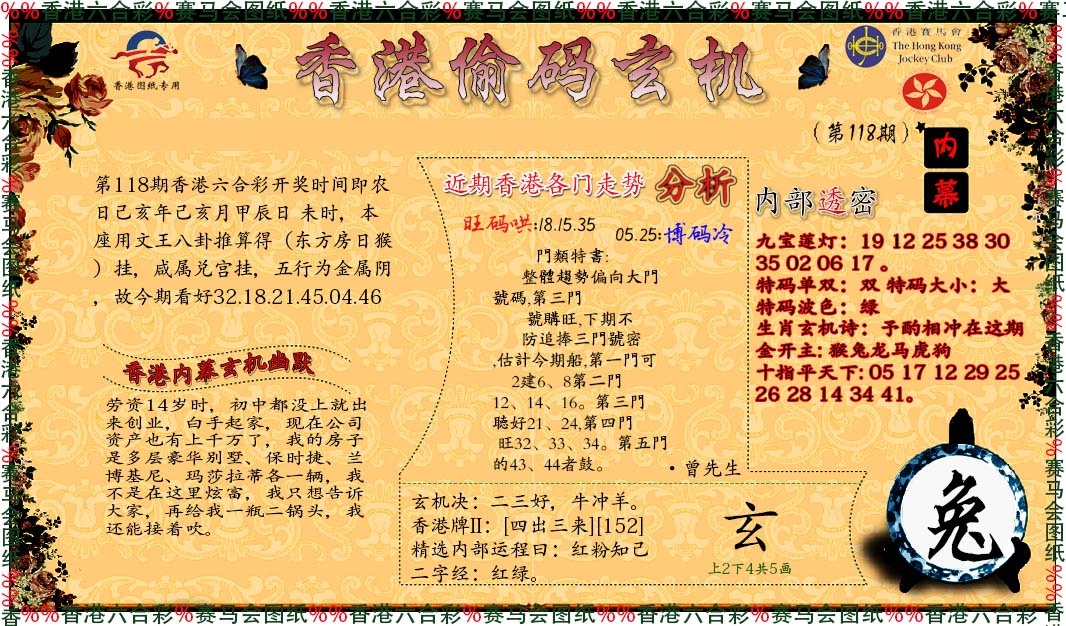 %%香港六合彩%赛马会图纸%%香港六合彩%赛马会图纸%%香港六合彩%赛马会图纸%%香港六合彩%赛
香港图纸专用
香港偷码玄机
香港賽馬會
The Hong Kong
Jockey Club
(第118期)
内
幕
第118期香港六合彩开奖时间即农
日己亥年己亥月甲辰日 未时，本
座用文王八卦推算得（东方房日猴
）挂，咸属兑宫挂，五行为金属阴
，故今期看好32.18.21.45.04.46
香港内幕玄机幽默
劳资14岁时，初中都没上就出
来创业，白手起家，现在公司
资产也有上千万了，我的房子
是多层豪华别墅、保时捷、兰
博基尼、玛莎拉蒂各一辆，我
不是在这里炫富，我只想告诉
大家，再给我一瓶二锅头，我
还能接着吹。
近期香港各门走势 分析
旺码哄:18.15.35
05.25:博码冷
門類特書:
整體趨勢偏向大門
號碼,第三門
號購旺,下期不
防追捧三門號密
,估計今期船,第一門可
2建6、8第二門
12、14、16。第三門
聽好21、24,第四門
旺32、33、34。第五門
的43、44者鼓。
·曾先生
玄机决：二三好，牛冲羊。
香港牌II：[四出三来][152]
精选内部运程曰：红粉知己
二字经：红绿。
玄
上2下4共5画
内部透密
九宝莲灯：19 12 25 38 30
35 02 06 17。
特码单双：双 特码大小：大
特码波色：绿
生肖玄机诗：予酌相冲在这期
金开主: 猴兔龙马虎狗
十指平天下: 05 17 12 29 25
26 28 14 34 41。
兔
香%%香港六合彩%赛马会图纸%%香港六合彩%赛马会图纸%%香港六合彩%赛马会图纸%%香港六合彩%